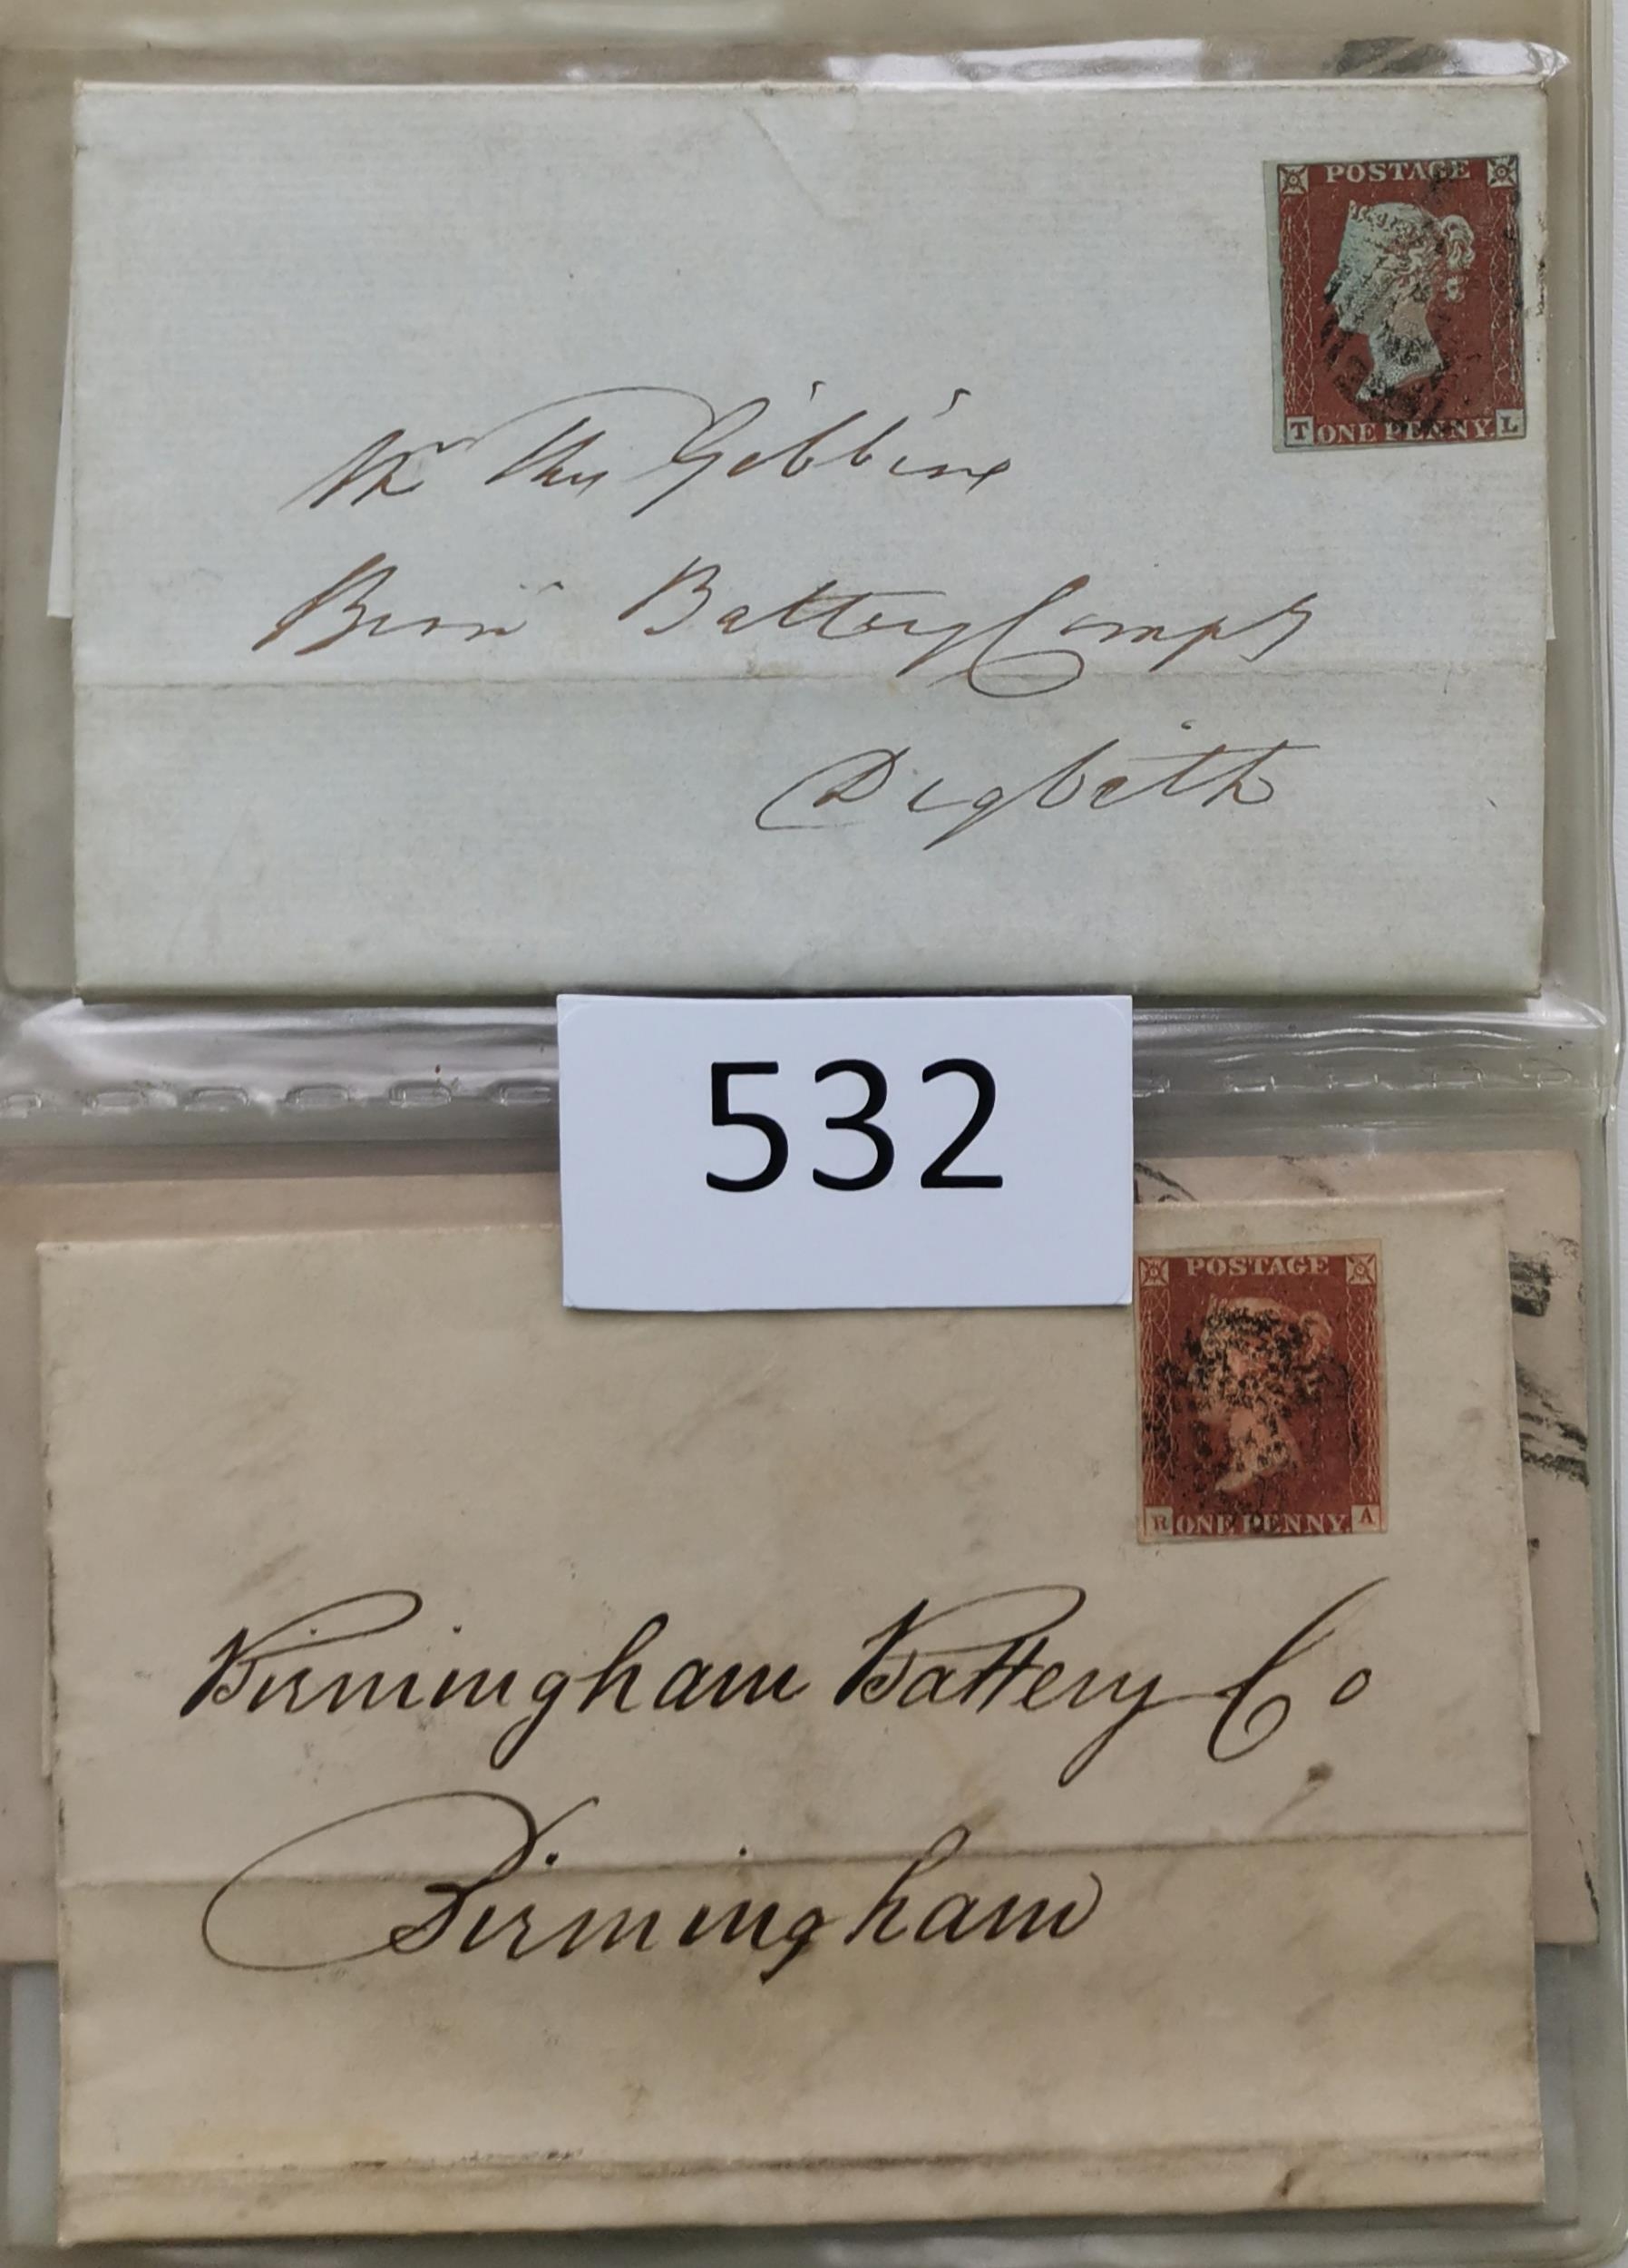 POSTAGE
T ONE PENNY. L
Mr Thos Gibbins
Birm Battery Compy
Digbeth
532
POSTAGE
R ONE PENNY. A
Birmingham Battery Co
Birmingham